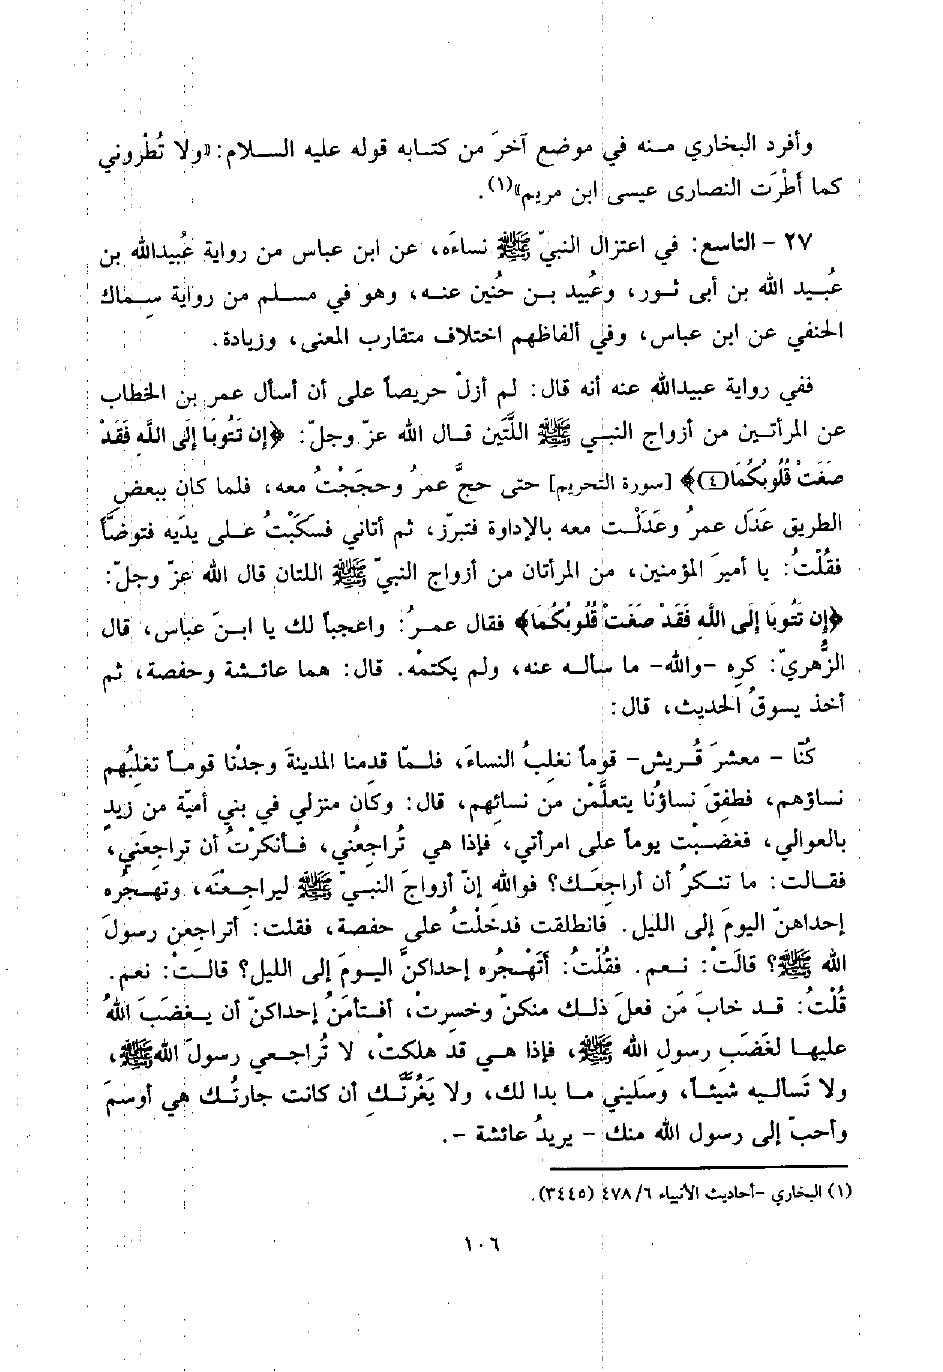 وأفرد البخاري منه في موضع آخرَ من كتابه قوله عليه السلام: «ولا تُطْروني
كما أَطْرَت النصارى عيسى ابن مريم»(١).
٢٧ - التاسع: في اعتزال النبيّ ﷺ نساءَه، عن ابن عباس من رواية عُبيدالله بن
عُبيد الله بن أبى ثور، وعُبيد بن حُنين عنه، وهو في مسلم من رواية سِماك
الحنفي عن ابن عباس، وفي ألفاظهم اختلاف متقارب المعنى، وزيادة.
ففي رواية عبيدالله عنه أنه قال: لم أزلْ حريصاً على أن أسأل عمر بن الخطاب
عن المرأتين من أزواج النبي ﷺ اللَّتَين قال الله عزّ وجلّ: ﴿إِن تَتُوبَا إِلَى اللَّهِ فَقَدْ
صَغَتْ قُلُوبُكُمَا(٤)﴾ [سورة التحريم] حتى حجَّ عمرُ وحجَجْتُ معه، فلما كان ببعضِ
الطريق عَدَل عمرُ وعَدَلْت معه بالإداوة فتبرّز، ثم أتاني فسَكَبْتُ على يدَيه فتوضّأَ
فقُلْتُ: يا أميرَ المؤمنين، من المرأتان من أزواج النبيّ ﷺ اللتان قال الله عزّ وجلّ:
﴿إِن تَتُوبَا إِلَى اللَّهِ فَقَدْ صَغَتْ قُلُوبُكُمَا﴾ فقال عمرُ: واعجباً لك يا ابنَ عباس، قال
الزُّهريّ: كرِه -والله- ما سأله عنه، ولم يكتمْه. قال: هما عائشة وحفصة، ثم
أخذ يسوقُ الحديث، قال:
كُنّا - معشرَ قُريش- قوماً نغلِبُ النساءَ، فلمّا قدِمنا المدينةَ وجدْنا قوماً تغلِبُهم
نساؤهم، فطفِقَ نساؤنا يتعلَّمْن من نسائِهم، قال: وكان منزلي في بني أميّة من زيدٍ
بالعوالي، فغضبْت يوماً على امرأتي، فإذا هي تُراجِعُني، فأنكرْتُ أن تراجِعَني،
فقالت: ما تنكرُ أن أراجِعَك؟ فوالله إنّ أزواجَ النبيّ ﷺ ليراجِعْنَه، وتهجُره
إحداهنّ اليومَ إلى الليل. فانطلقت فدخلْتُ على حفصة، فقلت: أتراجعن رسولَ
الله ﷺ؟ قالَتْ: نعم. فقُلْتُ: أَتَهْجُره إحداكنَّ اليومَ إلى الليل؟ قالتْ: نعم.
قُلْتُ: قد خابَ مَن فعلَ ذلك منكنّ وخسِرتْ، أفتأمَنُ إحداكنّ أن يغضَبَ اللهُ
عليها لغَضَبِ رسولِ الله ﷺ، فإذا هي قد هلكتْ، لا تُراجعي رسولَ اللهﷺ،
ولا تَسأليه شيئاً، وسَليني ما بدا لك، ولا يَغُرَّنَّكِ أن كانت جارتُك هي أوسمَ
وأحبّ إلى رسول الله منك - يريدُ عائشة -.
(١) البخاري -أحاديث الأنبياء ٤٧٨/٦ (٣٤٤٥).
١٠٦